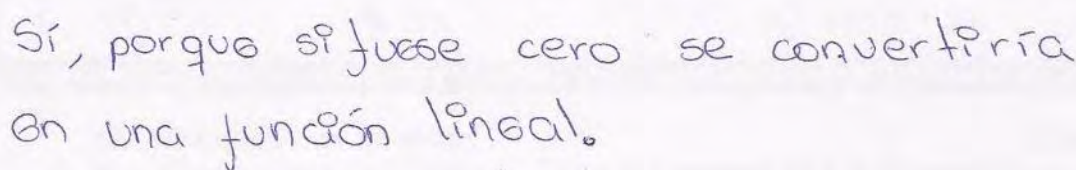 Sí, porque si fuese cero se convertiría
en una función lineal.